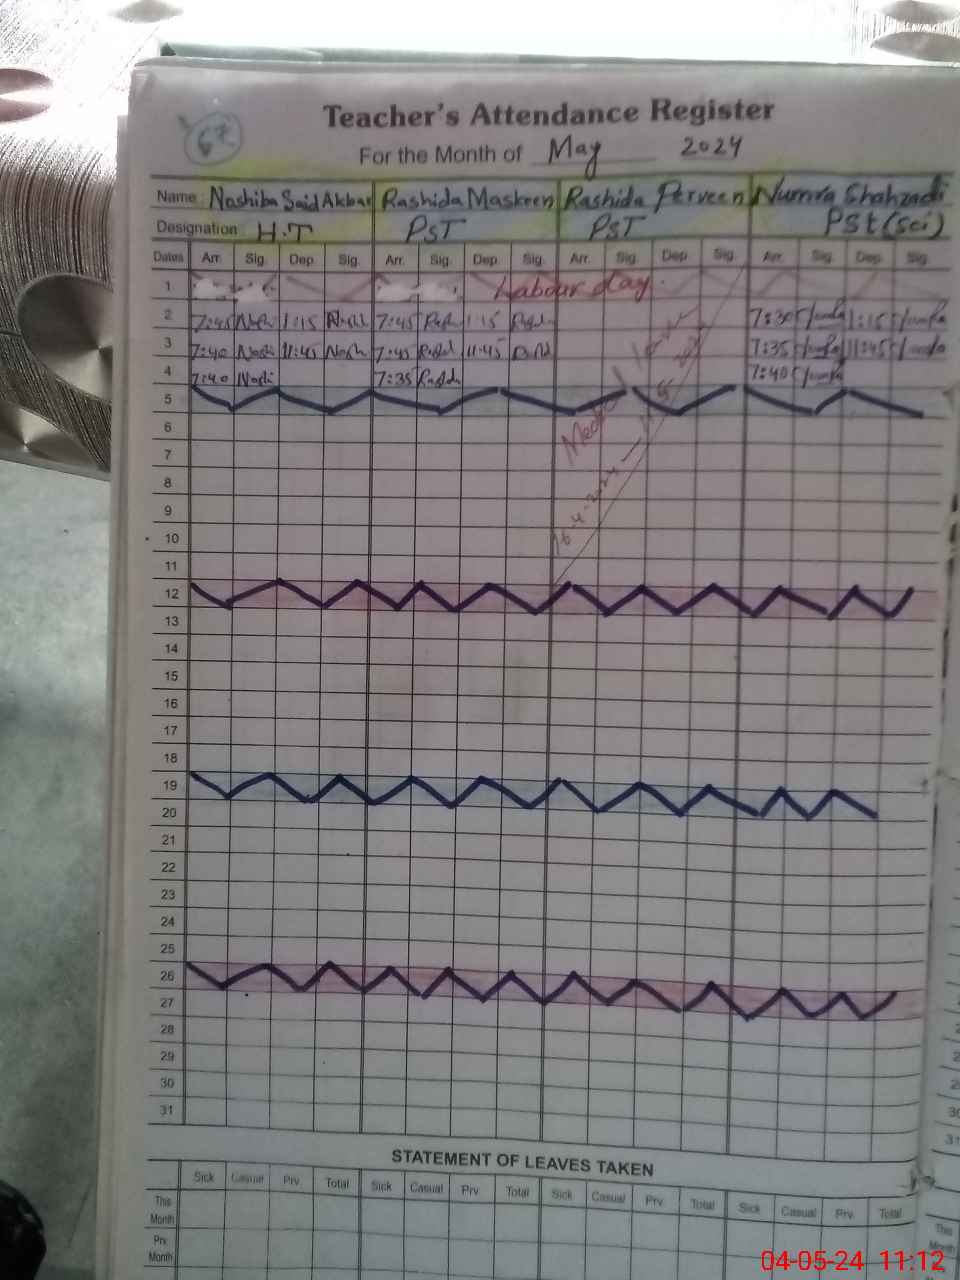 67
Teacher's Attendance Register
For the Month of May 2024
Name : Noshiba Said Akbar Rashida Maskeen Rashida Perveen Numra Shahzadi
Designation : H.T PST PST PSt (Sci)
Dates Arr. Sig. Dep. Sig. Arr. Sig. Dep. Sig. Arr. Sig. Dep. Sig. Arr. Sig. Dep. Sig.
1 Labour day.
2 7:45 1:15 7:45 1:15 7:30 1:15
3 7:40 11:45 7:45 11:45 7:35 11:45
4 7:40 7:35 7:40
5
6
7
8
9
10
11
12
13
14
15
16
17
18
19
20
21
22
23
24
25
26
27
28
29
30
31
STATEMENT OF LEAVES TAKEN
Sick Casual Prv Total Sick Casual Prv Total Sick Casual Prv Total Sick Casual Prv. Total
This
Month
Prv.
Month
04-05-24 11:12